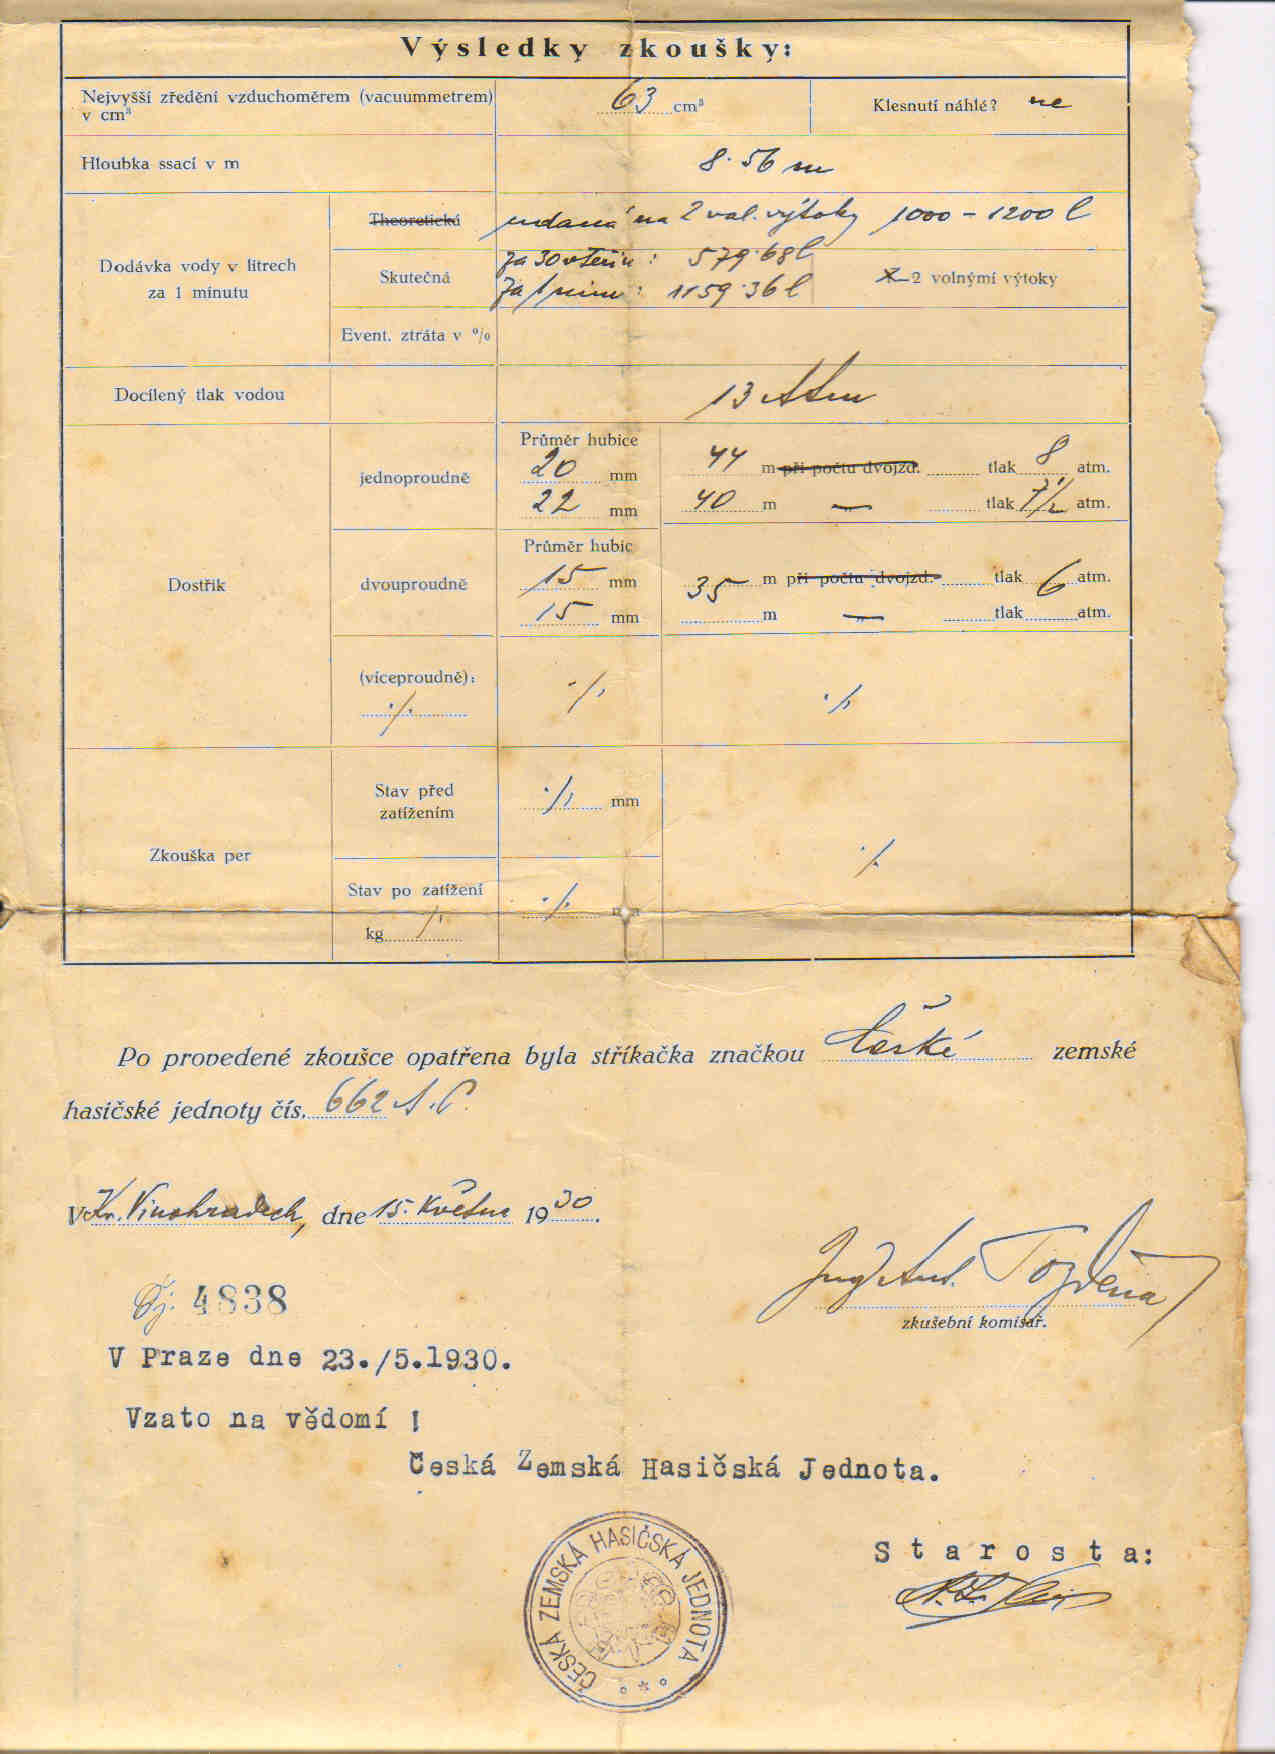 Výsledky zkoušky:
Nejvyšší zředění vzduchoměrem (vacuummetrem)
v cm³
63 cm³
Klesnutí náhlé? ne
Hloubka ssací v m
8·56 m
Dodávka vody v litrech
za 1 minutu
Theoretická
udaná na 2 vol. výtoky 1000 – 1200 l
Skutečná
za 30 vteřin: 579·68 l
za 1 min: 1159·36 l
2 volnými výtoky
Event. ztráta v %
Docílený tlak vodou
13 Atm
Dostřik
jednoproudně
Průměr hubice
20 mm
44 m při počtu dvojzd. tlak 8 atm.
22 mm
40 m — tlak 7 1/2 atm.
dvouproudně
Průměr hubic
15 mm
35 m při počtu dvojzd. tlak 6 atm.
15 mm
m — tlak atm.
(víceproudně):
·/·
·/·
·/·
Zkouška per
Stav před
zatížením
·/· mm
·/·
Stav po zatížení
kg ·/·
·/· mm
Po provedené zkoušce opatřena byla stříkačka značkou České zemské
hasičské jednoty čís. 662
V Kr. Vinohradech, dne 15. května 1930.
Čj. 4838
Ing Ant.
zkušební komisař.
V Praze dne 23./5.1930.
Vzato na vědomí !
Česká Zemská Hasičská Jednota.
ČESKÁ ZEMSKÁ HASIČSKÁ JEDNOTA
Starosta: